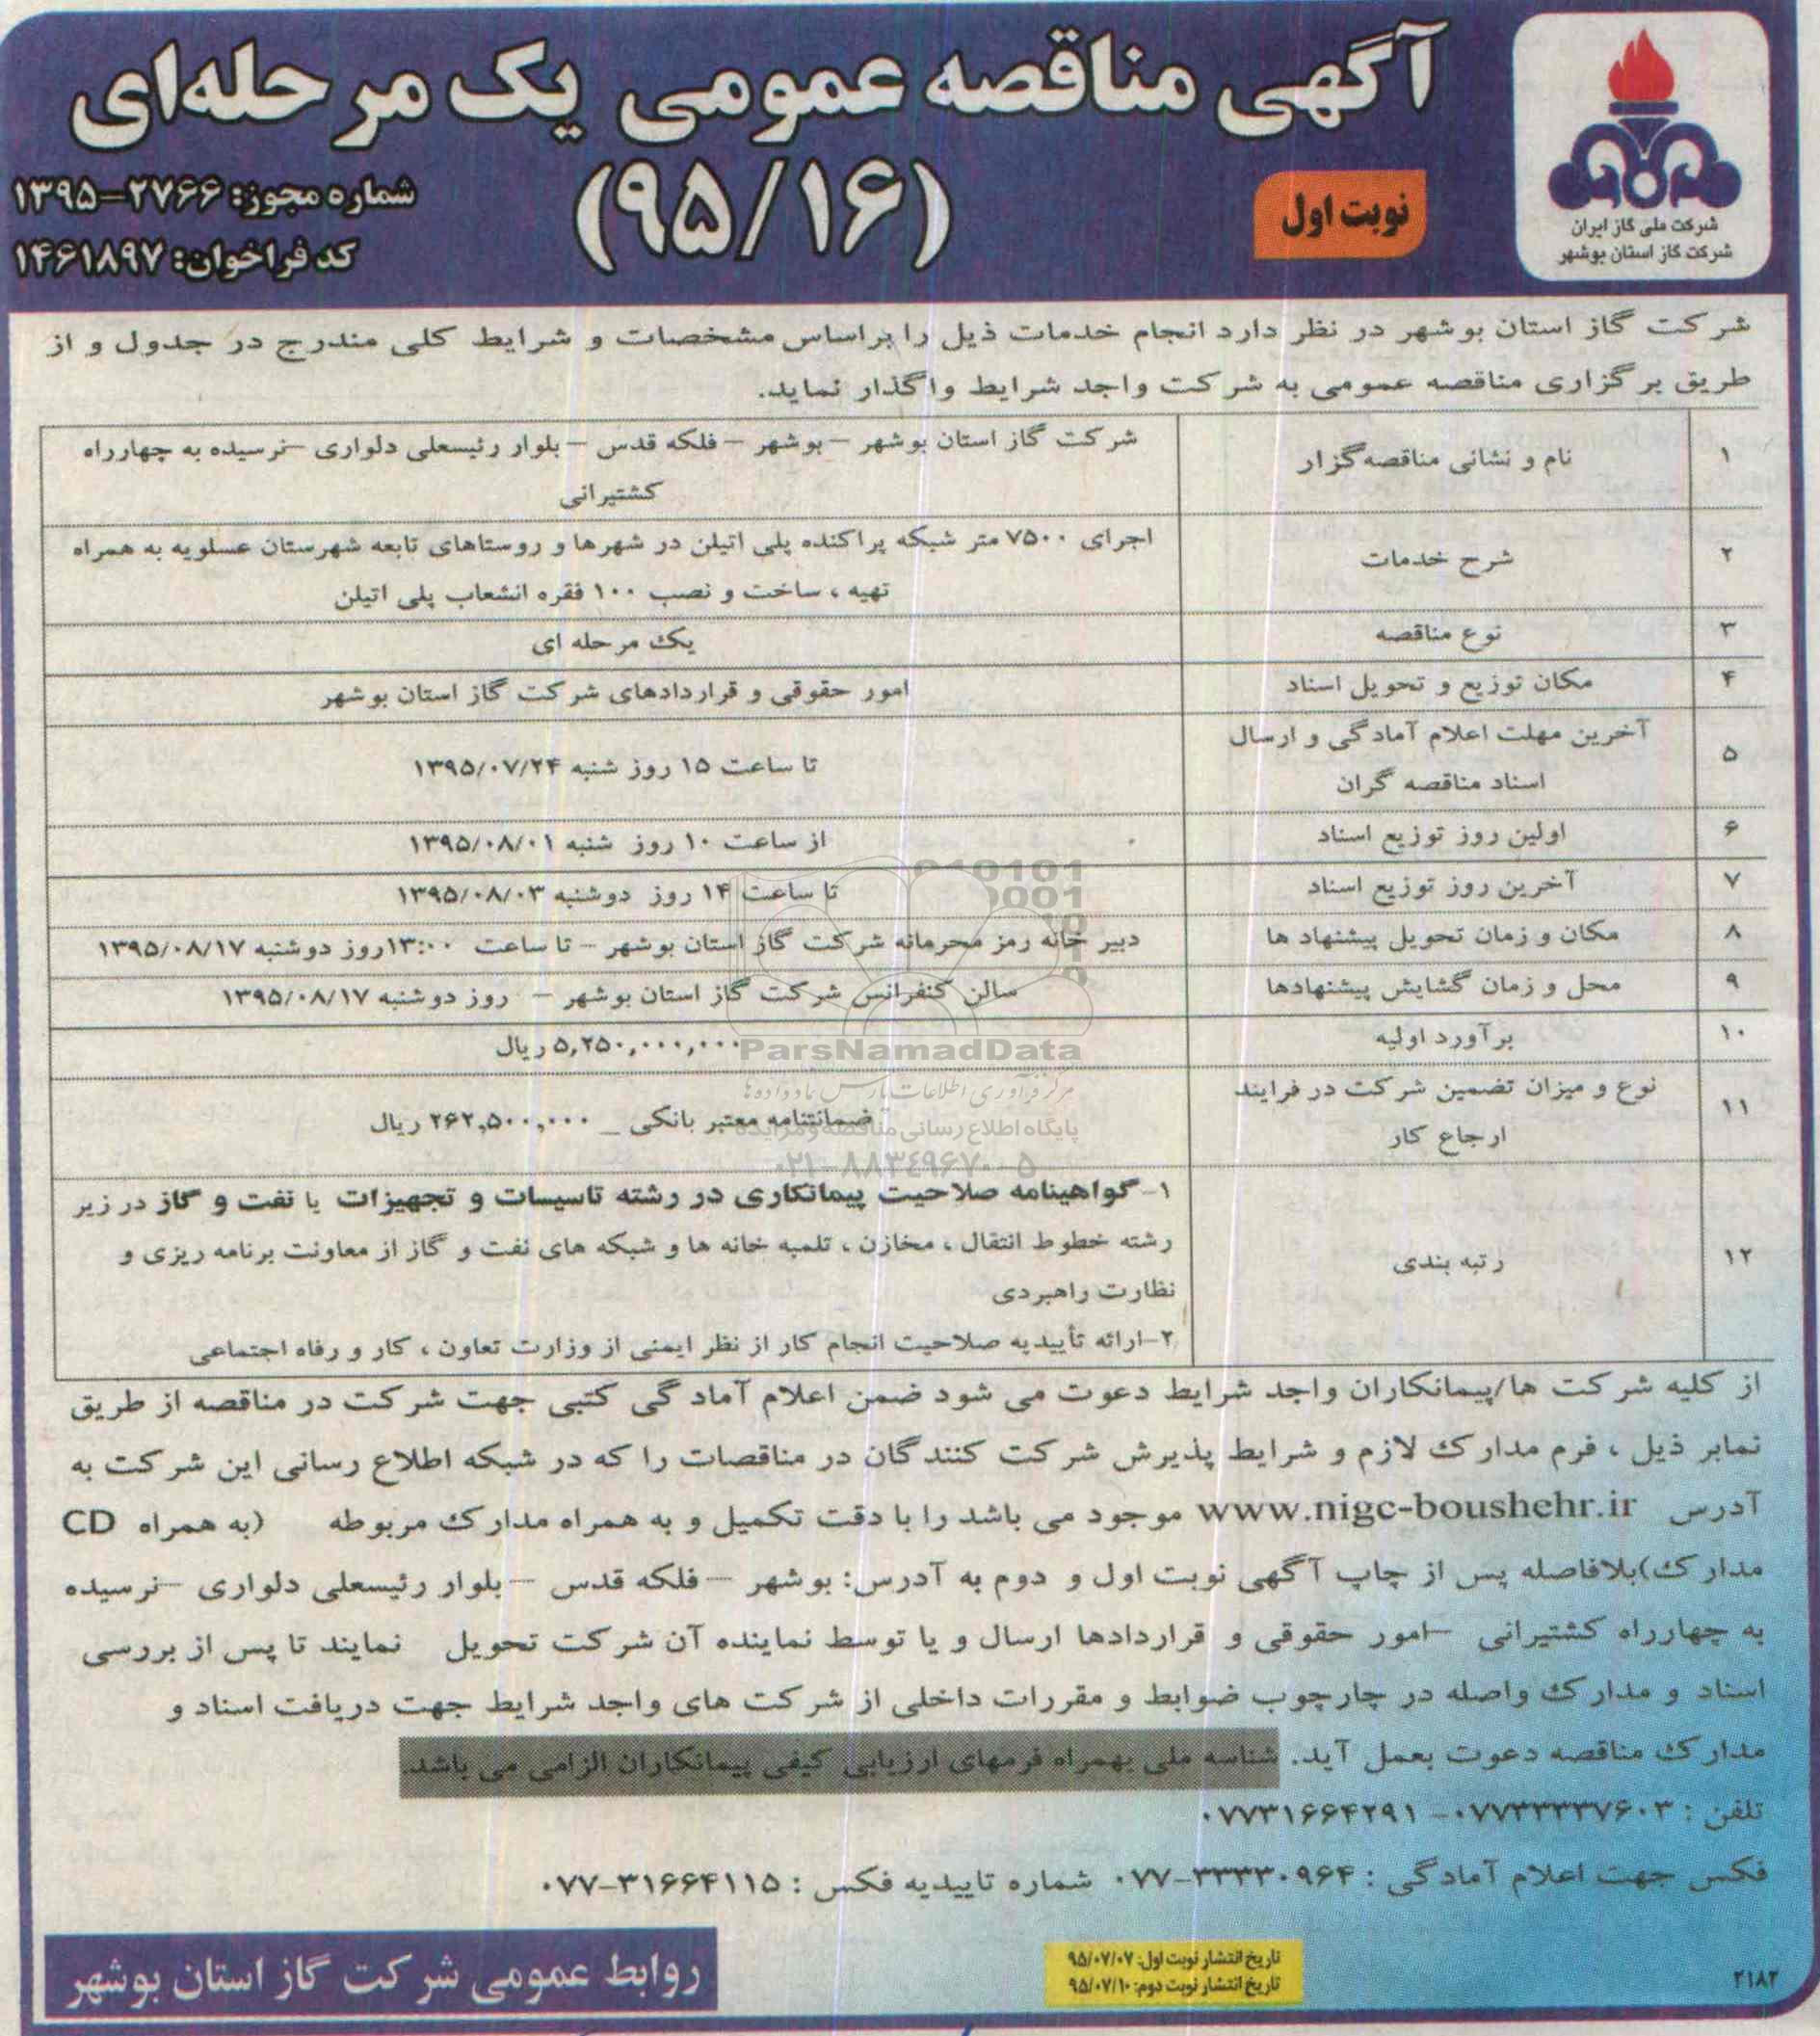 آگهی مناقصه عمومی یک مرحله‌ای
(۹۵/۱۶)
نوبت اول
شماره مجوز: ۲۷۶۶-۱۳۹۵
کد فراخوان: ۱۴۶۱۸۹۷
شرکت ملی گاز ایران
شرکت گاز استان بوشهر
شرکت گاز استان بوشهر در نظر دارد انجام خدمات ذیل را براساس مشخصات و شرایط کلی مندرج در جدول و از
طریق برگزاری مناقصه عمومی به شرکت واجد شرایط واگذار نماید.
۱ نام و نشانی مناقصه‌گزار شرکت گاز استان بوشهر – بوشهر – فلکه قدس – بلوار رئیسعلی دلواری – نرسیده به چهارراه
کشتیرانی
۲ شرح خدمات اجرای ۷۵۰۰ متر شبکه پراکنده پلی اتیلن در شهرها و روستاهای تابعه شهرستان عسلویه به همراه
تهیه ، ساخت و نصب ۱۰۰ فقره انشعاب پلی اتیلن
۳ نوع مناقصه یک مرحله ای
۴ مکان توزیع و تحویل اسناد امور حقوقی و قراردادهای شرکت گاز استان بوشهر
۵ آخرین مهلت اعلام آمادگی و ارسال
اسناد مناقصه گران تا ساعت ۱۵ روز شنبه ۱۳۹۵/۰۷/۲۴
۶ اولین روز توزیع اسناد از ساعت ۱۰ روز شنبه ۱۳۹۵/۰۸/۰۱
۷ آخرین روز توزیع اسناد تا ساعت ۱۴ روز دوشنبه ۱۳۹۵/۰۸/۰۳
۸ مکان و زمان تحویل پیشنهاد ها دبیر خانه رمز محرمانه شرکت گاز استان بوشهر – تا ساعت ۱۳:۰۰ روز دوشنبه ۱۳۹۵/۰۸/۱۷
۹ محل و زمان گشایش پیشنهادها سالن کنفرانس شرکت گاز استان بوشهر – روز دوشنبه ۱۳۹۵/۰۸/۱۷
۱۰ برآورد اولیه ۵,۲۵۰,۰۰۰,۰۰۰ ریال
۱۱ نوع و میزان تضمین شرکت در فرایند
ارجاع کار ضمانتنامه معتبر بانکی _ ۲۶۲,۵۰۰,۰۰۰ ریال
۱۲ رتبه بندی ۱-گواهینامه صلاحیت پیمانکاری در رشته تاسیسات و تجهیزات یا نفت و گاز در زیر
رشته خطوط انتقال ، مخازن ، تلمبه خانه ها و شبکه های نفت و گاز از معاونت برنامه ریزی و
نظارت راهبردی
۲-ارائه تأییدیه صلاحیت انجام کار از نظر ایمنی از وزارت تعاون ، کار و رفاه اجتماعی
010101
0001
10
ParsNamadData
مرکز فرآوری اطلاعات پارس نماد داده‌ها
پایگاه اطلاع رسانی مناقصه و مزایده
۰۲۱-۸۸۳۴۹۶۷۰-۵
از کلیه شرکت ها/پیمانکاران واجد شرایط دعوت می شود ضمن اعلام آماد گی کتبی جهت شرکت در مناقصه از طریق
نمابر ذیل ، فرم مدارک لازم و شرایط پذیرش شرکت کنندگان در مناقصات را که در شبکه اطلاع رسانی این شرکت به
آدرس www.nigc-boushehr.ir موجود می باشد را با دقت تکمیل و به همراه مدارک مربوطه (به همراه CD
مدارک)بلافاصله پس از چاپ آگهی نوبت اول و دوم به آدرس: بوشهر – فلکه قدس – بلوار رئیسعلی دلواری – نرسیده
به چهارراه کشتیرانی – امور حقوقی و قراردادها ارسال و یا توسط نماینده آن شرکت تحویل نمایند تا پس از بررسی
اسناد و مدارک واصله در چارچوب ضوابط و مقررات داخلی از شرکت های واجد شرایط جهت دریافت اسناد و
مدارک مناقصه دعوت بعمل آید. شناسه ملی بهمراه فرمهای ارزیابی کیفی پیمانکاران الزامی می باشد.
تلفن : ۰۷۷۳۳۳۳۷۶۰۳ - ۰۷۷۳۱۶۶۴۲۹۱
فکس جهت اعلام آمادگی : ۳۳۳۳۰۹۶۴-۰۷۷ شماره تاییدیه فکس : ۳۱۶۶۴۱۱۵-۰۷۷
تاریخ انتشار نوبت اول: ۹۵/۰۷/۰۷
تاریخ انتشار نوبت دوم: ۹۵/۰۷/۱۰
۲۱۸۲
روابط عمومی شرکت گاز استان بوشهر